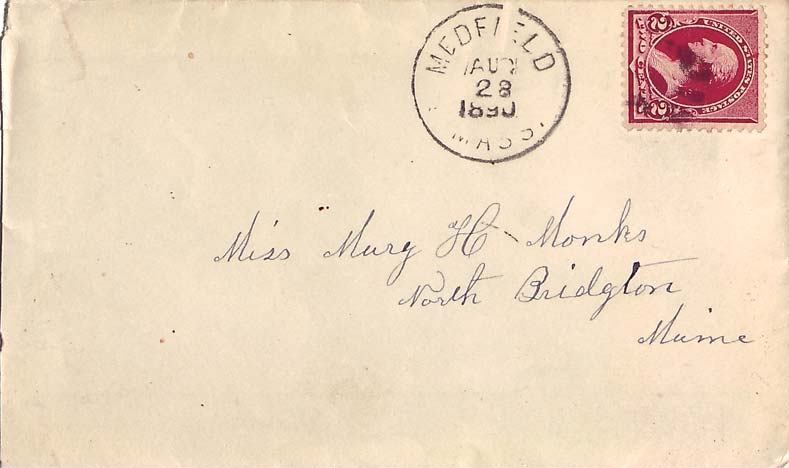 MEDFIELD
AUG
28
1890
MASS.
UNITED STATES POSTAGE
2 2
Miss Mary H Monks
North Bridgton
Maine